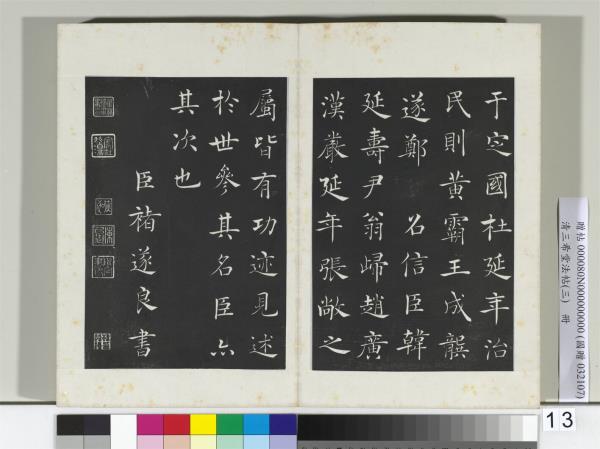 于定國杜延年治
民則黃霸王成龔
遂鄭 名信臣韓
延壽尹翁歸趙廣
漢嚴延年張敞之
屬皆有功迹見述
於世參其名臣亦
其次也
臣褚遂良書
贈帖 000080N000000000 (國贈 032107)
清三希堂法帖(三) 冊
13